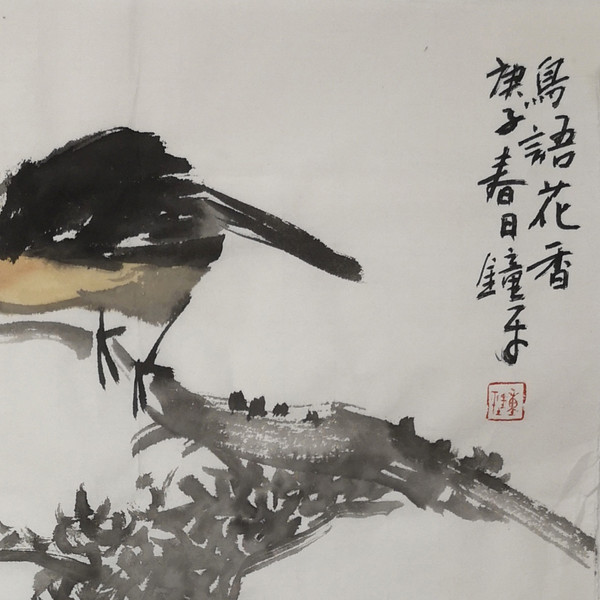 鳥語花香
庚子春日鐘平